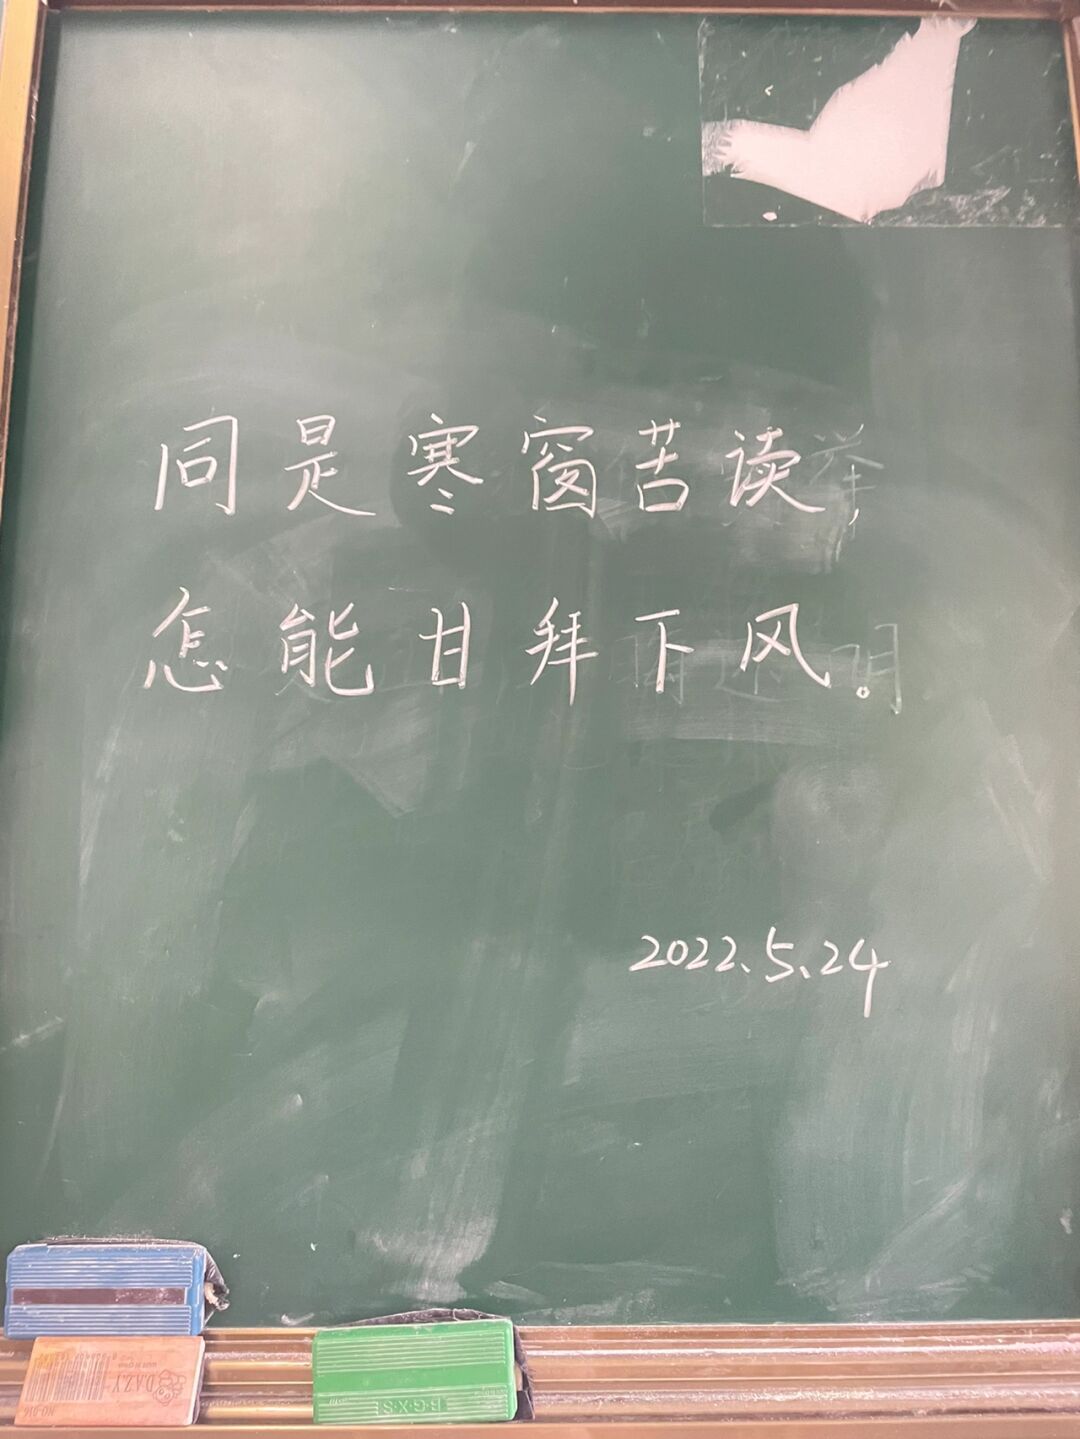 同是寒窗苦读，
怎能甘拜下风。
2022.5.24
DAZY
B·G·X·S